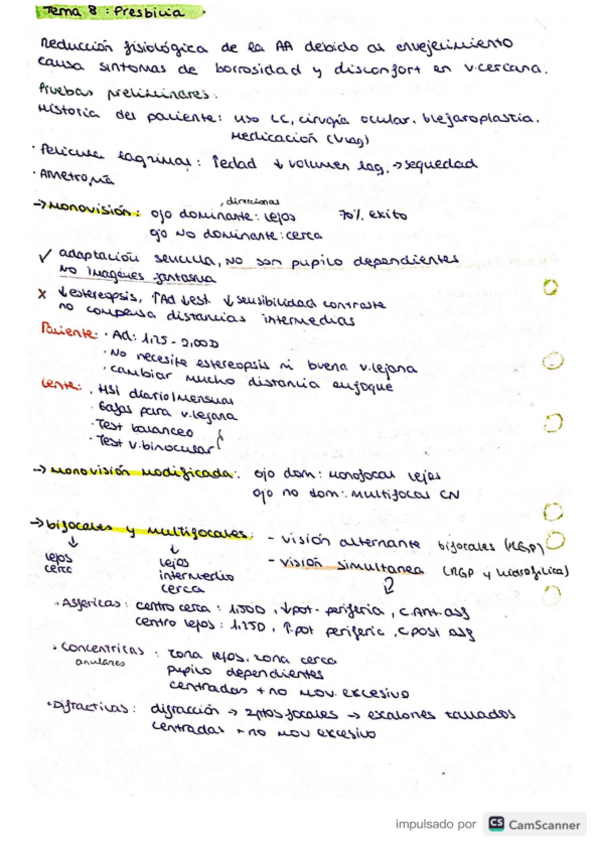 Tema 8: Presbicia.
Reducción fisiológica de la AA debido al envejecimiento
causa síntomas de borrosidad y disconfort en v.cercana.
Pruebas preliminares:
Historia del paciente: uso LC, cirugía ocular. blefaroplastia.
Medicación (Vlag)
· Película lagrimal: ↑edad ↓ volumen lag. → sequedad
· Ametropía
, direccional
→ Monovisión: ojo dominante: lejos 70% éxito
ojo NO dominante: cerca
✓ adaptación sencilla, NO son pupilo dependientes
NO imágenes fantasma
x ↓estereopsis, ↑Ad ↓est. ↓ sensibilidad contraste
no compensa distancias intermedias
Paciente: · Ad: 1,25 - 2,00D
· No necesite estereopsis ni buena v.lejana
· cambiar mucho distancia enfoque
Lente: · HSI diario/mensual
· Gafas para v.lejana
· Test balanceo
· Test v.binocular
→ Monovisión modificada: ojo dom: monofocal lejos
ojo no dom: multifocal CN
→ bifocales y multifocales: - visión alternante bifocales (RGP)
↓ ↓ - visión simultanea (RGP y hidrofílica)
lejos lejos
cerca intermedio
cerca
· Asféricas: centro cerca: 1.50D, ↓pot. periferia, C.Ant. asf
centro lejos: 1.25D, ↑pot periferia, C post asf
· Concéntricas: zona lejos, zona cerca
anulares pupilo dependientes
centradas + no mov. excesivo
· Difractivas: difracción → 2 ptos focales → escalones tallados
centradas + no mov excesivo
impulsado por CS CamScanner